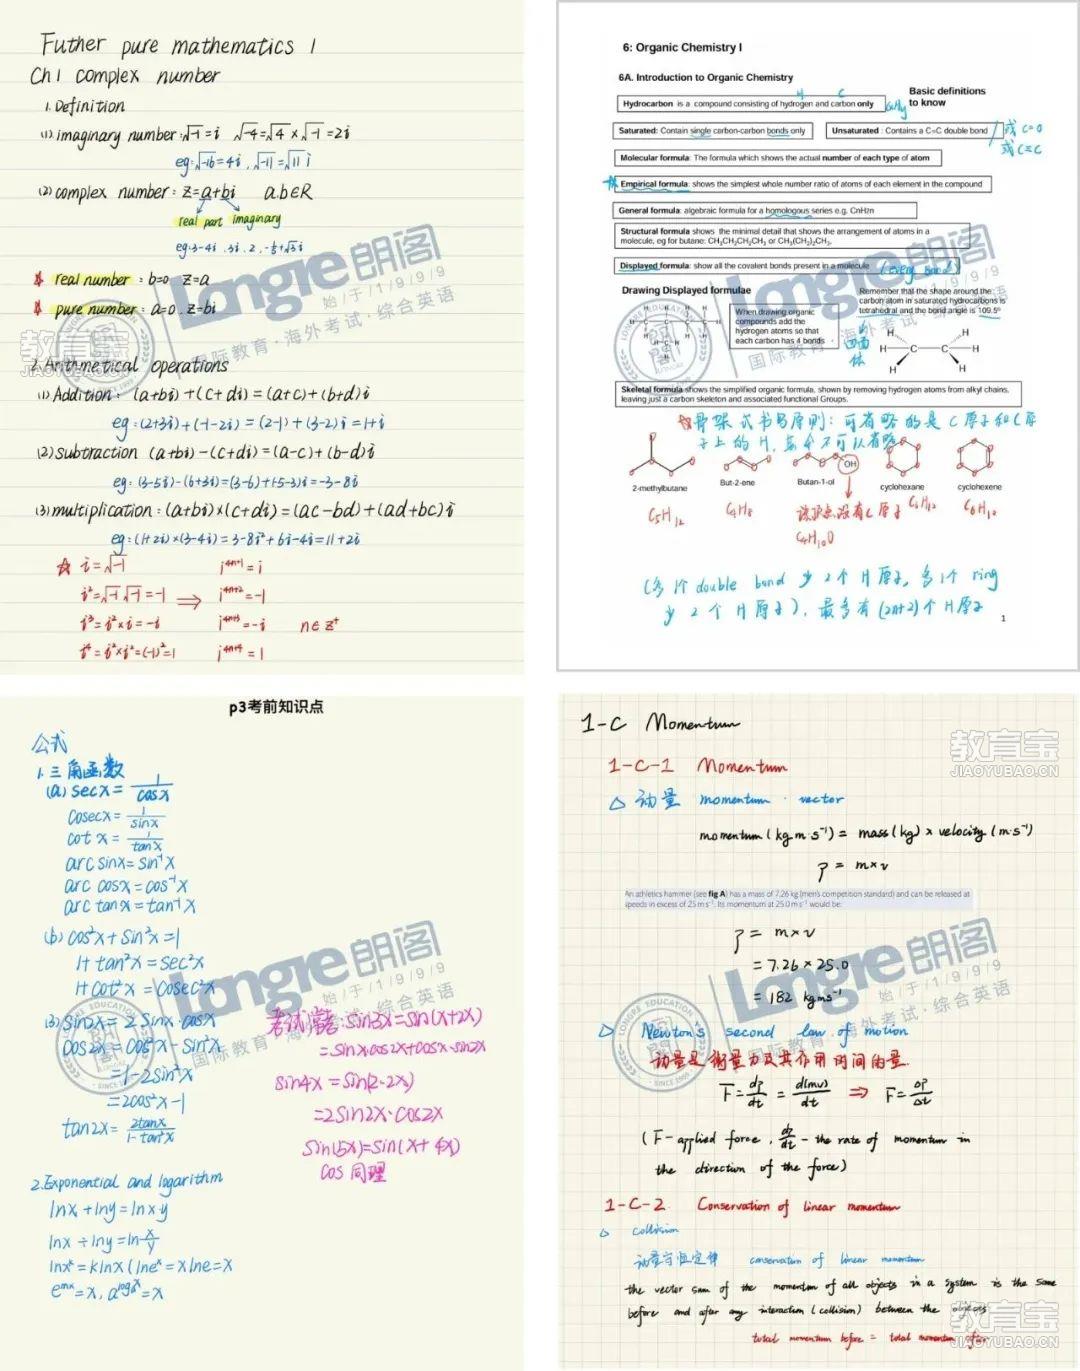 Futher pure mathematics 1
Ch1 complex number
1. Definition
(1). imaginary number: √-1 = i √-4 = √4 × √-1 = 2i
eg: √-16 = 4i , √-11 = √11 i
(2) complex number: z = a+bi a.b∈R
real part imaginary
eg: 3-4i . 3i . 2 .
real number : b=0 z=a
pure number : a=0. z=bi
2. Arithmetical operations
(1) Addition: (a+bi)+(c+di)=(a+c)+(b+d)i
eg: (2+3i)+(-1-2i)=(2-1)+(3-2)i=1+i
(2) subtraction (a+bi)-(c+di)=(a-c)+(b-d)i
eg: (3-5i)-(6+3i)=(3-6)+(-5-3)i=-3-8i
(3) multiplication: (a+bi)×(c+di)=(ac-bd)+(ad+bc)i
eg: (1+2i)×(3-4i)=3-8i²+6i-4i=11+2i
☆ i=√-1 i⁴ⁿ⁺¹=i
i²=√-1 √-1=-1 ⇒ i⁴ⁿ⁺²=-1
i³=i²×i=-i i⁴ⁿ⁺³=-i n∈z⁺
i⁴=i²×i²=(-1)²=1 i⁴ⁿ⁺⁴=1
6: Organic Chemistry I
6A. Introduction to Organic Chemistry
Basic definitions
to know
H C
Hydrocarbon is a compound consisting of hydrogen and carbon only
CxHy
Saturated: Contain single carbon-carbon bonds only
Unsaturated : Contains a C=C double bond
或 C=O
或 C≡C
Molecular formula: The formula which shows the actual number of each type of atom
Empirical formula: shows the simplest whole number ratio of atoms of each element in the compound
General formula: algebraic formula for a homologous series e.g. CnH2n
Structural formula shows the minimal detail that shows the arrangement of atoms in a
molecule, eg for butane: CH₃CH₂CH₂CH₃ or CH₃(CH₂)₂CH₃,
Displayed formula: show all the covalent bonds present in a molecule (every bond)
Drawing Displayed formulae
When drawing organic
compounds add the
hydrogen atoms so that
each carbon has 4 bonds
Remember that the shape around the
carbon atom in saturated hydrocarbons is
tetrahedral and the bond angle is 109.5°
四面
体
Skeletal formula shows the simplified organic formula, shown by removing hydrogen atoms from alkyl chains,
leaving just a carbon skeleton and associated functional Groups.
骨架式书写原则: 可省略的是 C 原子和 C 原
子上的 H, 其余不可以省略
OH
2-methylbutane But-2-ene Butan-1-ol cyclohexane cyclohexene
C₅H₁₂ C₄H₈ 该顶点没有C原子 C₆H₁₂ C₆H₁₀
C₄H₁₀O
(多1个 double bond 少 2个 H 原子, 多1个 ring
少 2个 H 原子), 最多有 (2n+2)个 H 原子
1
p3考前知识点
公式
1. 三角函数
(a) secx = 1/cosx
cosecx = 1/sinx
cot x = 1/tanx
arc sinx = sin⁻¹x
arc cosx = cos⁻¹x
arc tanx = tan⁻¹x
(b) cos²x + sin²x = 1
1+ tan²x = sec²x
1+ cot²x = cosec²x
(3) sin2x = 2 sinx·cosx
cos2x = cos²x - sin²x
= 1-2sin²x
= 2cos²x-1
tan2x = 2tanx/1-tan²x
考试常考: sin3x = sin(x+2x)
= sinx·cos2x+cosx·sin2x
sin4x = sin(2·2x)
= 2sin2x·cos2x
sin(5x) = sin(x+4x)
cos 同理
2. Exponential and logarithm
lnx + lny = lnxy
lnx ÷ lny = ln x/y
lnxᵏ = klnx (lneˣ = xlne = x
1-C Momentum
1-C-1 Momentum
△ 动量 momentum · vector
momentum (kg m·s⁻¹) = mass(kg) × velocity (m·s⁻¹)
p = m×v
An athletics hammer (see fig A) has a mass of 7.26 kg (men's competition standard) and can be released at
speeds in excess of 25 m s⁻¹. Its momentum at 25.0 m s⁻¹ would be:
p = m×v
= 7.26 × 25.0
= 182 kgms⁻¹
▷ Newton's second law of motion
动量是衡量力及其作用时间的量.
F = dp/dt = d(mv)/dt ⇒ F = Δp/Δt
(F - applied force , dp/dt - the rate of momentum in
the direction of the force)
1-C-2 Conservation of linear momentum
▷ collision
动量守恒定律 conservation of linear momentum
the vector sum of the momentum of all objects in a system is the same
before and after any interaction (collision) between the objects
total momentum before = total momentum after
Longre朗阁
始/于/1/9/9/9
国际教育·海外考试·综合英语
LONGRE EDUCATION
SINCE 1999
教育宝
JIAOYUBAO.CN